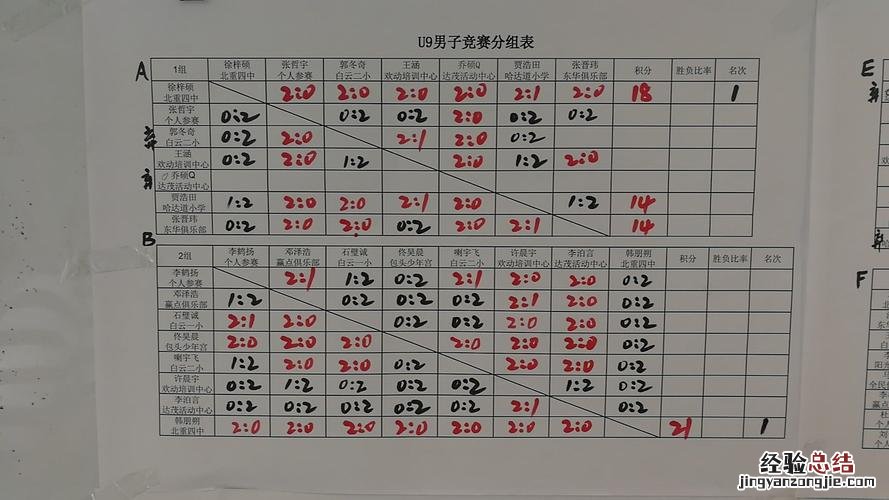 U9男子竞赛分组表
A
1组 徐梓硕 北重四中 张哲宇 个人参赛 郭冬奇 白云二小 王涵 欢动培训中心 乔硕Q 达茂活动中心 贾浩田 哈达道小学 张晋玮 东华俱乐部 积分 胜负比率 名次
徐梓硕 北重四中 2:0 2:0 2:0 2:0 2:1 2:0 18 1
张哲宇 个人参赛 0:2 0:2 0:2 2:0 0:2 0:2
郭冬奇 白云二小 0:2 2:0 2:1 2:0 0:2
王涵 欢动培训中心 0:2 2:0 1:2 2:0 1:2 2:0
乔硕Q 达茂活动中心
贾浩田 哈达道小学 1:2 2:0 2:0 2:1 2:0 1:2 14
张晋玮 东华俱乐部 0:2 2:0 2:0 0:2 2:0 2:1 14
B
2组 李鹤扬 个人参赛 邓泽浩 赢点俱乐部 石璧诚 白云一小 佟昊晨 包头少年宫 喇宇飞 白云二小 许晨宇 欢动培训中心 李泊言 达茂活动中心 韩朋朔 北重四中 积分 胜负比率 名次
李鹤扬 个人参赛 2:1 1:2 0:2 2:1 2:0 2:0 0:2
邓泽浩 赢点俱乐部 1:2 0:2 0:2 0:2 2:1 2:0 0:2
石璧诚 白云一小 2:1 2:0 0:2 0:2 2:0 2:0 0:2
佟昊晨 包头少年宫 2:0 2:0 2:0 2:0 2:0 2:0 0:2
喇宇飞 白云二小 1:2 2:0 2:0 0:2 2:0 2:0 0:2
许晨宇 欢动培训中心 0:2 1:2 0:2 0:2 0:2 1:2 0:2
李泊言 达茂活动中心 0:2 0:2 0:2 0:2 0:2 2:1 0:2
韩朋朔 北重四中 2:0 2:0 2:0 2:0 2:0 2:0 2:0 21 1
E
F
经验总结
jingyanzongjie.com